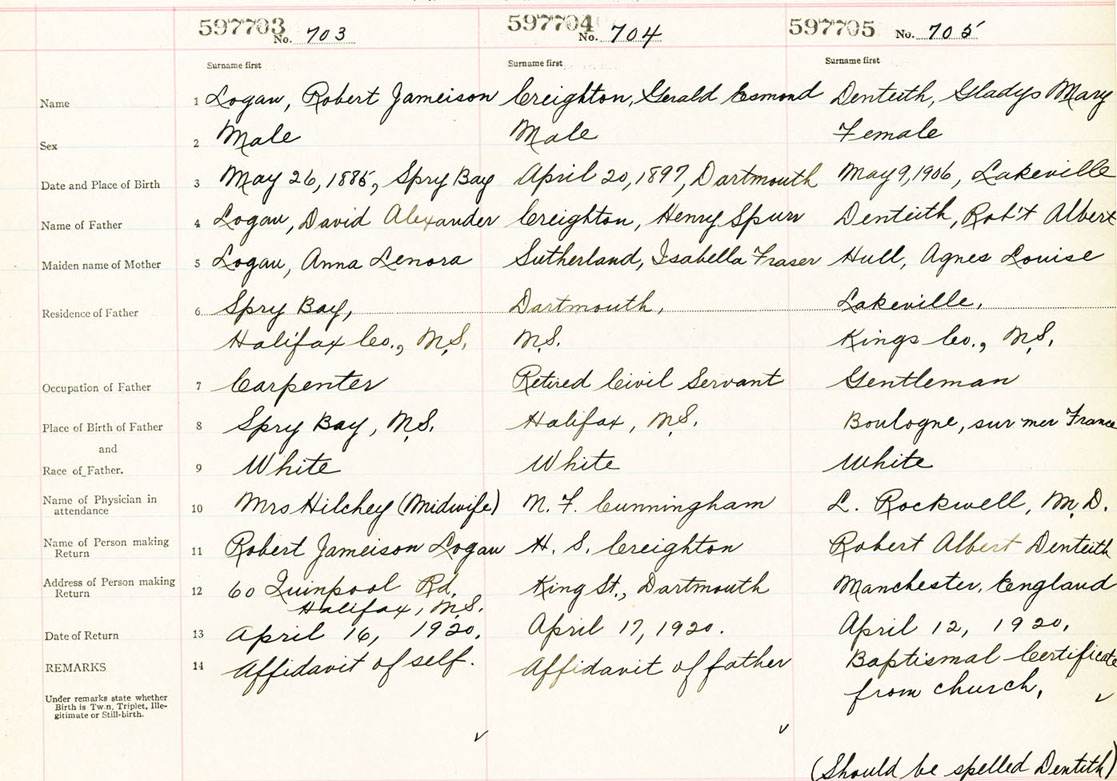 597703 No. 703 597704 No. 704 597705 No. 705
Surname first Surname first Surname first
Name 1 Logan, Robert Jameison Creighton, Gerald Esmond Denteith, Gladys Mary
Sex 2 Male Male Female
Date and Place of Birth 3 May 26, 1885, Spry Bay April 20, 1897, Dartmouth May 9, 1906, Lakeville
Name of Father 4 Logan, David Alexander Creighton, Henry Spurr Denteith, Rob't Albert
Maiden name of Mother 5 Logan, Anna Lenora Sutherland, Isabella Fraser Hull, Agnes Louise
Residence of Father 6 Spry Bay, Dartmouth, Lakeville,
Halifax Co., N.S. N.S. Kings Co., N.S.
Occupation of Father 7 Carpenter Retired Civil Servant Gentleman
Place of Birth of Father 8 Spry Bay, N.S. Halifax, N.S. Boulogne, sur-mer France
and
Race of Father. 9 White White White
Name of Physician in attendance 10 Mrs Hilchey (Midwife) N. F. Cunningham L. Rockwell, M.D.
Name of Person making Return 11 Robert Jameison Logan H. S. Creighton Robert Albert Denteith
Address of Person making Return 12 60 Quinpool Rd. King St., Dartmouth Manchester, England
Halifax, N.S.
Date of Return 13 April 16, 1920. April 17, 1920. April 12, 1920.
REMARKS 14 Affidavit of self. Affidavit of father Baptismal Certificate
from church.
Under remarks state whether
Birth is Twin, Triplet, Ille-
gitimate or Still-birth.
(Should be spelled Dentith)